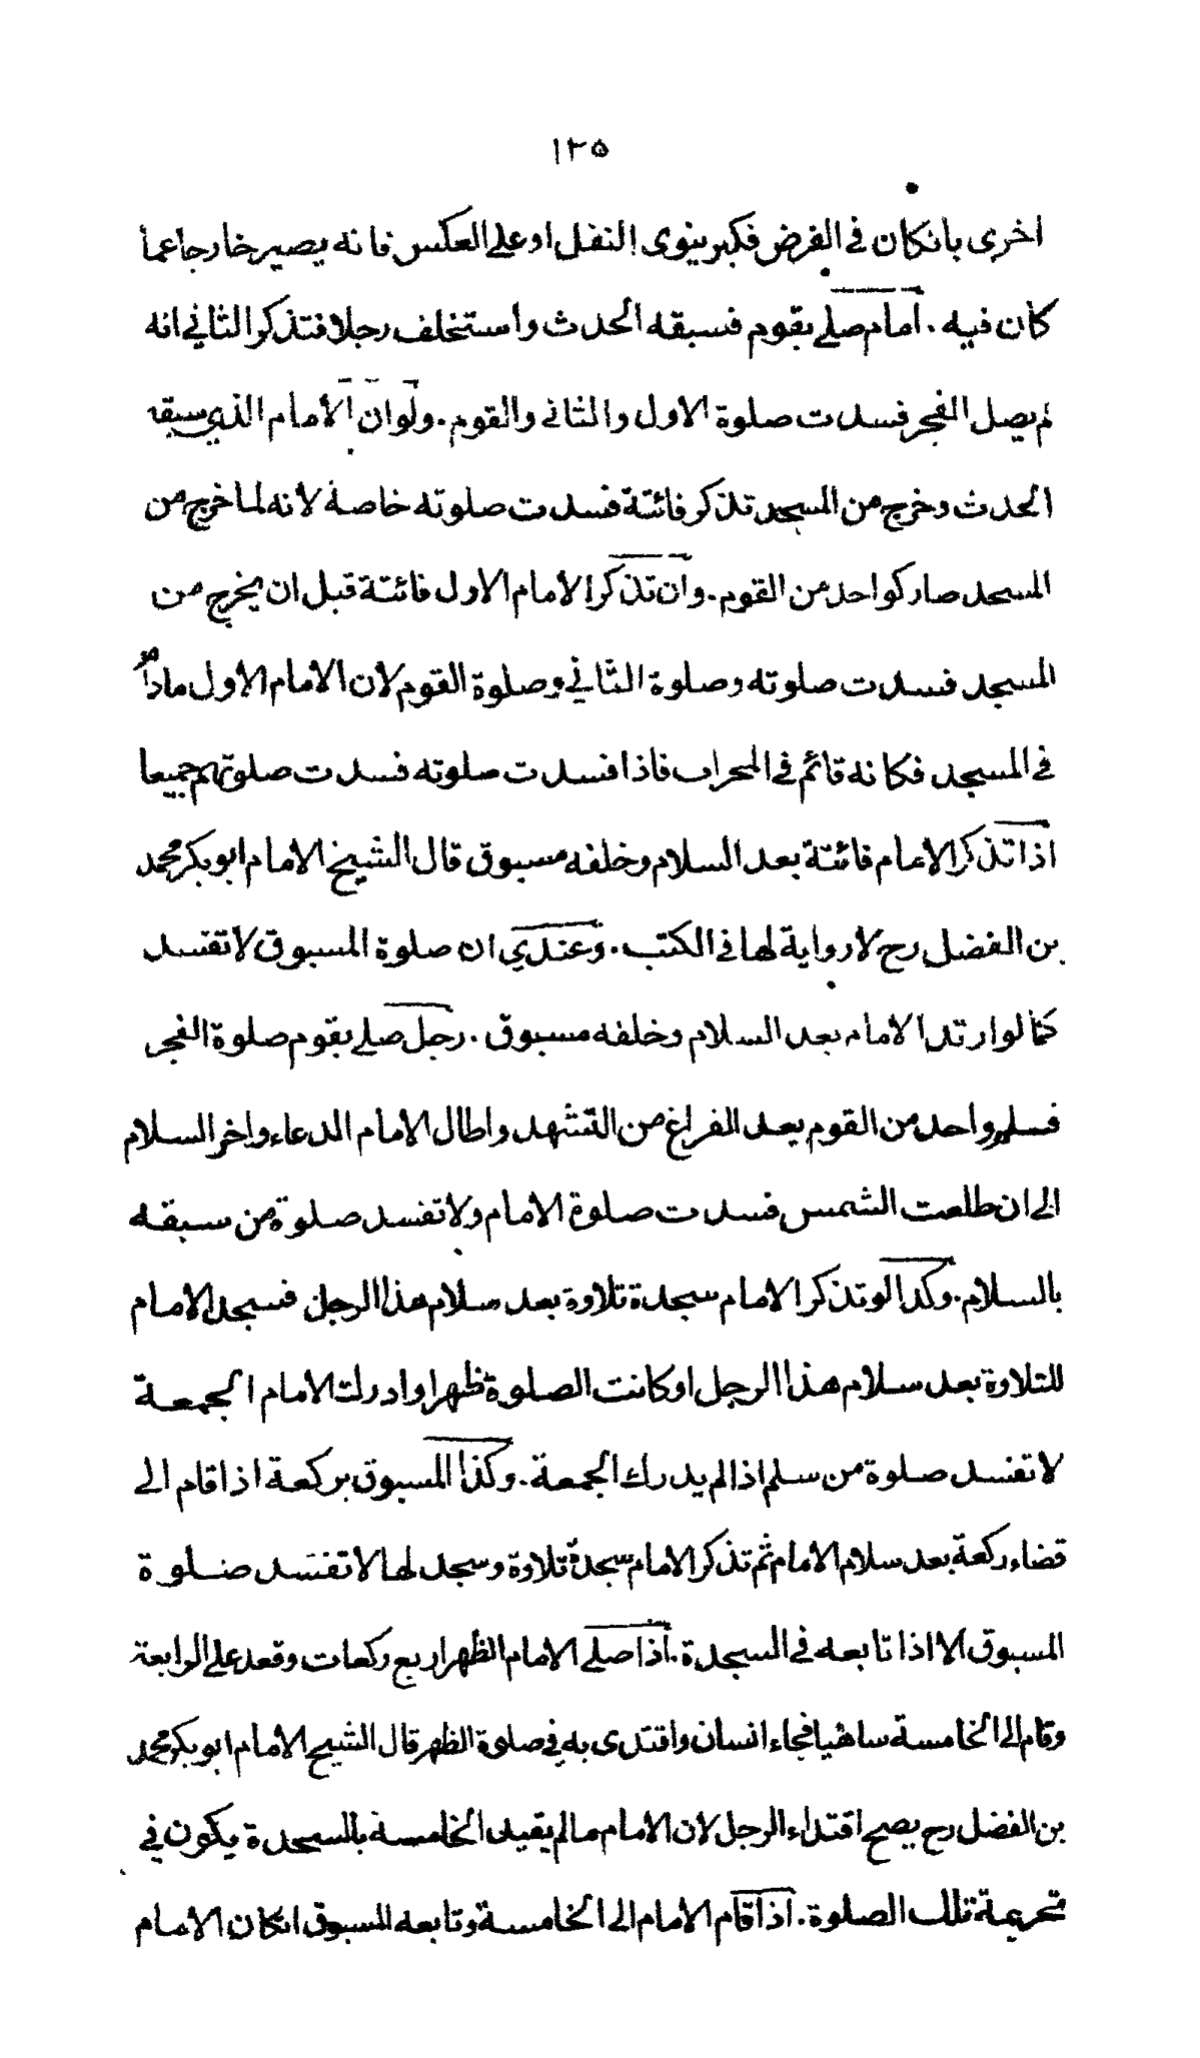 ١٢٥
اخرى بانكان فى الفرض فكبر ينوى النفل او على العكس فانه يصير خارجا عما
كان فيه . امام صلى بقوم فسبقه الحدث واستخلف رجلا فتذكر الثاني انه
لم يصل الفجر فسدت صلوة الاول والثانى والقوم . ولو ان الامام الذي سبقه
الحدث وخرج من المسجد تذكر فائتة فسدت صلوته خاصة لانه لما خرج من
المسجد صار كواحد من القوم . وان تذكر الامام الاول فائتة قبل ان يخرج من
المسجد فسدت صلوته وصلوة الثاني وصلوة القوم لان الامام الاول مادام
في المسجد فكانه قائم في المحراب فاذا فسدت صلوته فسدت صلوتهم جميعا
اذا تذكر الامام فائتة بعد السلام وخلفه مسبوق قال الشيخ الامام ابو بكر محمد
بن الفضل رح لا رواية لها في الكتب . وعندي ان صلوة المسبوق لا تفسد
كما لو ارتد الامام بعد السلام وخلفه مسبوق . رجل صلى بقوم صلوة الفجر
فسلم واحد من القوم بعد الفراغ من التشهد واطال الامام الدعاء واخر السلام
الى ان طلعت الشمس فسدت صلوة الامام ولا تفسد صلوة من سبقه
بالسلام . وكذا لو تذكر الامام سجدة تلاوة بعد سلام هذا الرجل فسجد الامام
للتلاوة بعد سلام هذا الرجل او كانت الصلوة ظهرا وادرك الامام الجمعة
لا تفسد صلوة من سلم اذا لم يدرك الجمعة . وكذا المسبوق بركعة اذا قام الى
قضاء ركعة بعد سلام الامام ثم تذكر الامام سجدة تلاوة وسجد لها لا تفسد صلوة
المسبوق الا اذا تابعه في السجدة . اذا صلى الامام الظهر اربع ركعات وقعد على الرابعة
وقام الى الخامسة ساهيا فجاء انسان واقتدى به في صلوة الظهر قال الشيخ الامام ابو بكر محمد
بن الفضل رح يصح اقتداء الرجل لان الامام مالم يقيد الخامسة بالسجدة يكون في
تحريمة تلك الصلوة . اذا قام الامام الى الخامسة وتابعه المسبوق انكان الامام